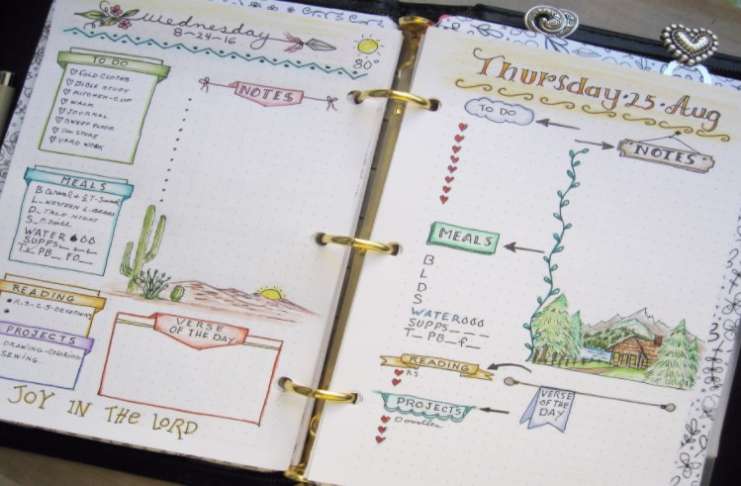 Wednesday
8-24-16
80°
TO DO
FOLD CLOTHES
BIBLE STUDY
KITCHEN-CLUP
WALK
JOURNAL
SWEEP PORCH
YARD WORK
NOTES
MEALS
B
L
D
S
WATER
SUPPS
T PB FO
READING
PROJECTS
DRAWING-COLORING
SEWING
VERSE
OF THE DAY
JOY IN THE LORD
Thursday·25·Aug
TO DO
NOTES
MEALS
B
L
D
S
WATER
SUPPS
T_ PB_ f_
READING
RS
PROJECTS
Doodles
VERSE
OF THE
DAY